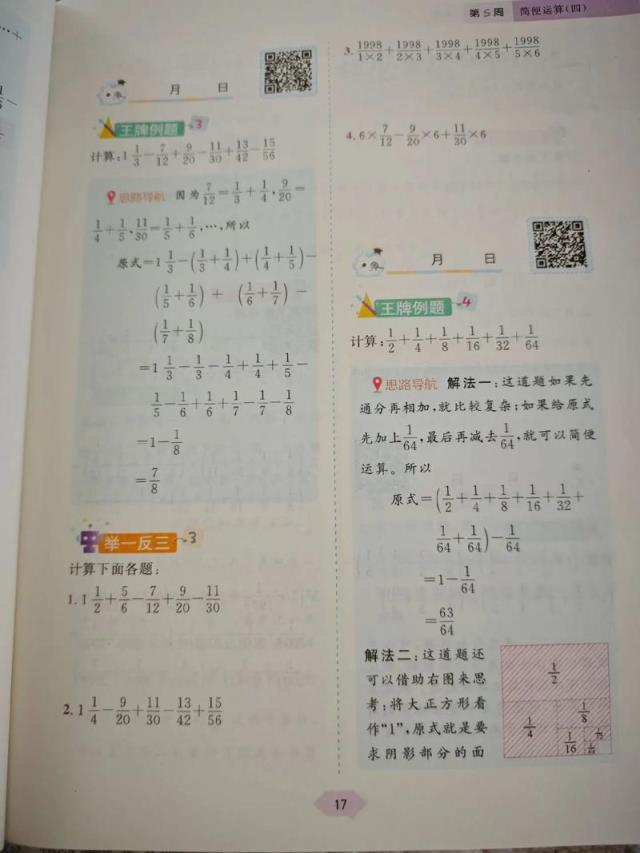 第5周 简便运算(四)
月 日
王牌例题 3
计算:1 1/3 - 7/12 + 9/20 - 11/30 + 13/42 - 15/56
思路导航 因为 7/12 = 1/3 + 1/4, 9/20 =
1/4 + 1/5, 11/30 = 1/5 + 1/6, …,所以
原式=1 1/3 - (1/3 + 1/4) + (1/4 + 1/5) -
(1/5 + 1/6) + (1/6 + 1/7) -
(1/7 + 1/8)
=1 1/3 - 1/3 - 1/4 + 1/4 + 1/5 -
1/5 - 1/6 + 1/6 + 1/7 - 1/7 - 1/8
=1 - 1/8
=7/8
举一反三 3
计算下面各题:
1. 1 1/2 + 5/6 - 7/12 + 9/20 - 11/30
2. 1 1/4 - 9/20 + 11/30 - 13/42 + 15/56
3. 1998/1×2 + 1998/2×3 + 1998/3×4 + 1998/4×5 + 1998/5×6
4. 6 × 7/12 - 9/20 × 6 + 11/30 × 6
月 日
王牌例题 4
计算:1/2 + 1/4 + 1/8 + 1/16 + 1/32 + 1/64
思路导航 解法一:这道题如果先
通分再相加,就比较复杂;如果给原式
先加上 1/64,最后再减去 1/64,就可以简便
运算。所以
原式=(1/2 + 1/4 + 1/8 + 1/16 + 1/32 +
1/64 + 1/64) - 1/64
=1 - 1/64
=63/64
解法二:这道题还
可以借助右图来思
考:将大正方形看
作“1”,原式就是要
求阴影部分的面
1/2
1/4
1/8
1/16
17